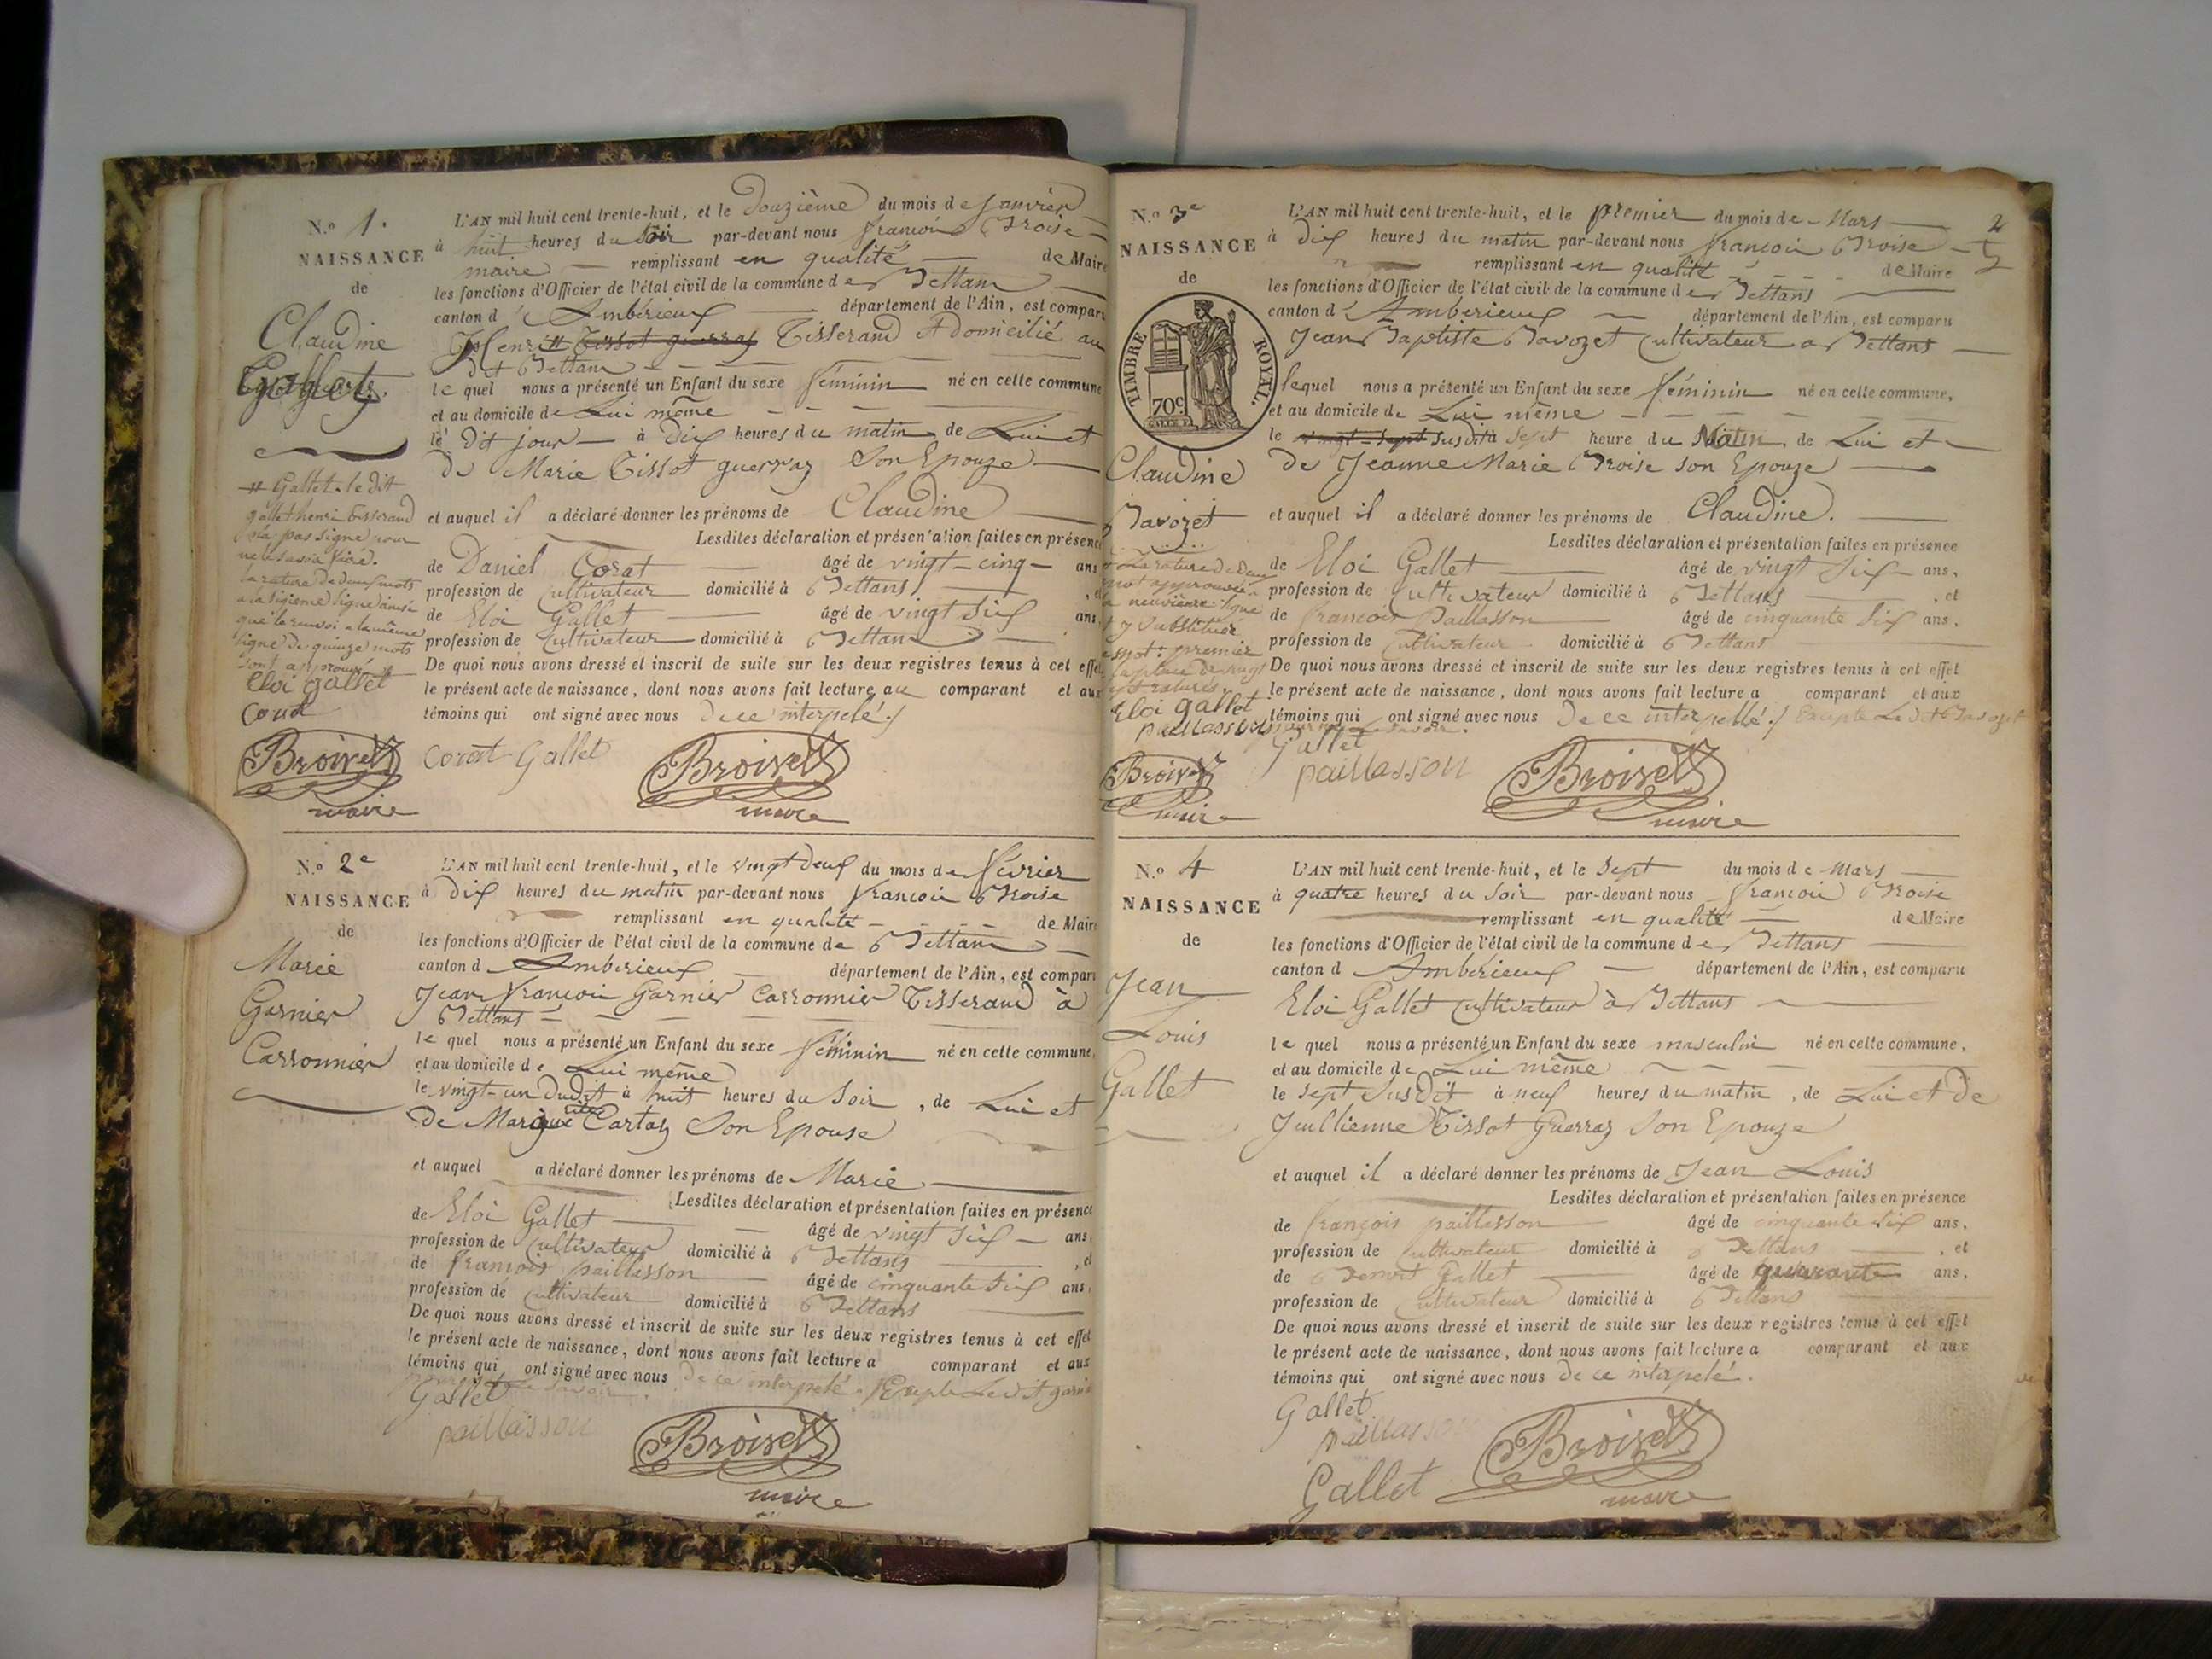 N.º 1.
NAISSANCE
de
Claudine
Gallet
# Gallet. le dit
gallet henri tisserand
n'a pas signé pour
ne le savoir faire.
la rature de deux mots
a la sixieme ligne ainsi
que le renvoi a la même
ligne de quinze mots
sont approuvé
Eloi gallet
Corat
Broise
maire
L'AN mil huit cent trente-huit, et le Douzième du mois de janvier
à huit heures du Soir par-devant nous françois Broise
maire remplissant en qualité de Maire
les fonctions d'Officier de l'état civil de la commune de Bettans
canton d'Ambérieux département de l'Ain, est comparu
Henri # Tissot guerraz Tisserand Et domicilié au
dit Bettans
le quel nous a présenté un Enfant du sexe féminin né en cette commune
et au domicile de Lui même
le dit jour à dix heures du matin de Lui et
de Marie Tissot guerraz Son Epouze
et auquel il a déclaré donner les prénoms de Claudine
Lesdites déclaration et présentation faites en présence
de Daniel Corat âgé de vingt-cinq ans
profession de Cultivateur domicilié à Bettans, et
de Eloi Gallet âgé de vingt Six ans.
profession de Cultivateur domicilié à Bettans
De quoi nous avons dressé et inscrit de suite sur les deux registres tenus à cet effet
le présent acte de naissance, dont nous avons fait lecture au comparant et aux
témoins qui ont signé avec nous De ce interpelé./
Corat Gallet
Broise
maire
N.º 2e
NAISSANCE
de
Marie
Garnier
Carronnier
L'AN mil huit cent trente-huit, et le vingt deux du mois de février
à dix heures du matin par-devant nous françois Broise
remplissant en qualité de Maire
les fonctions d'Officier de l'état civil de la commune de Bettans
canton d'Ambérieux département de l'Ain, est comparu
Jean françois Garnier Carronnier Tisserand à
Bettans
le quel nous a présenté un Enfant du sexe féminin né en cette commune,
et au domicile de Lui même
le vingt-un dudit à huit heures du Soir, de Lui et
de Cartaz Son Epouse
et auquel a déclaré donner les prénoms de Marie
Lesdites déclaration et présentation faites en présence
de Eloi Gallet âgé de vingt Six ans.
profession de Cultivateur domicilié à Bettans, et
de françois paillasson âgé de cinquante Six ans.
profession de Cultivateur domicilié à Bettans
De quoi nous avons dressé et inscrit de suite sur les deux registres tenus à cet effet
le présent acte de naissance, dont nous avons fait lecture a comparant et aux
témoins qui ont signé avec nous De ce interpelé. Excepté Le dit garnier
Gallet
paillasson
Broise
maire
2
N.º 3e
NAISSANCE
de
TIMBRE ROYAL.
70c
Claudine
Bavozet
La rature de Deux
mot approuvée a
la neuvième ligne
mot: premier
Eloi gallet
paillasson
Broise
maire
L'AN mil huit cent trente-huit, et le premier du mois de Mars
à dix heures du matin par-devant nous françois Broise
remplissant en qualité de Maire
les fonctions d'Officier de l'état civil de la commune de Bettans
canton d'Ambérieux département de l'Ain, est comparu
Jean Baptiste Bavozet Cultivateur à Bettans
lequel nous a présenté un Enfant du sexe féminin né en cette commune,
et au domicile de Lui même
le vingt-sept susdit à Sept heure du Matin, de Lui et
de Jeanne Marie Broise son Epouze
et auquel il a déclaré donner les prénoms de Claudine.
Lesdites déclaration et présentation faites en présence
de Eloi Gallet âgé de vingt Six ans,
profession de Cultivateur domicilié à Bettans, et
de françois Paillasson âgé de cinquante Six ans.
profession de Cultivateur domicilié à Bettans
De quoi nous avons dressé et inscrit de suite sur les deux registres tenus à cet effet
le présent acte de naissance, dont nous avons fait lecture a comparant et aux
témoins qui ont signé avec nous De ce interpellé./ Excepté Le dit Bavozet
Gallet
paillasson
Broise
maire
N.º 4
NAISSANCE
de
Jean
Louis
Gallet
L'AN mil huit cent trente-huit, et le Sept du mois de Mars
à quatre heures du Soir par-devant nous françois Broise
remplissant en qualité de Maire
les fonctions d'Officier de l'état civil de la commune de Bettans
canton d'Ambérieux département de l'Ain, est comparu
Eloi Gallet Cultivateur à Bettans
le quel nous a présenté un Enfant du sexe masculin né en cette commune,
et au domicile de Lui même
le Sept susdit à neuf heures du matin, de Lui et de
Jullienne Tissot Guerraz Son Epouze
et auquel il a déclaré donner les prénoms de Jean Louis
Lesdites déclaration et présentation faites en présence
de françois paillasson âgé de cinquante Six ans.
profession de Cultivateur domicilié à Bettans, et
de Benoit Gallet âgé de quarante ans.
profession de Cultivateur domicilié à Bettans
De quoi nous avons dressé et inscrit de suite sur les deux registres tenus à cet effet
le présent acte de naissance, dont nous avons fait lecture a comparant et aux
témoins qui ont signé avec nous De ce interpelé.
Gallet
paillasson
Gallet
Broise
maire